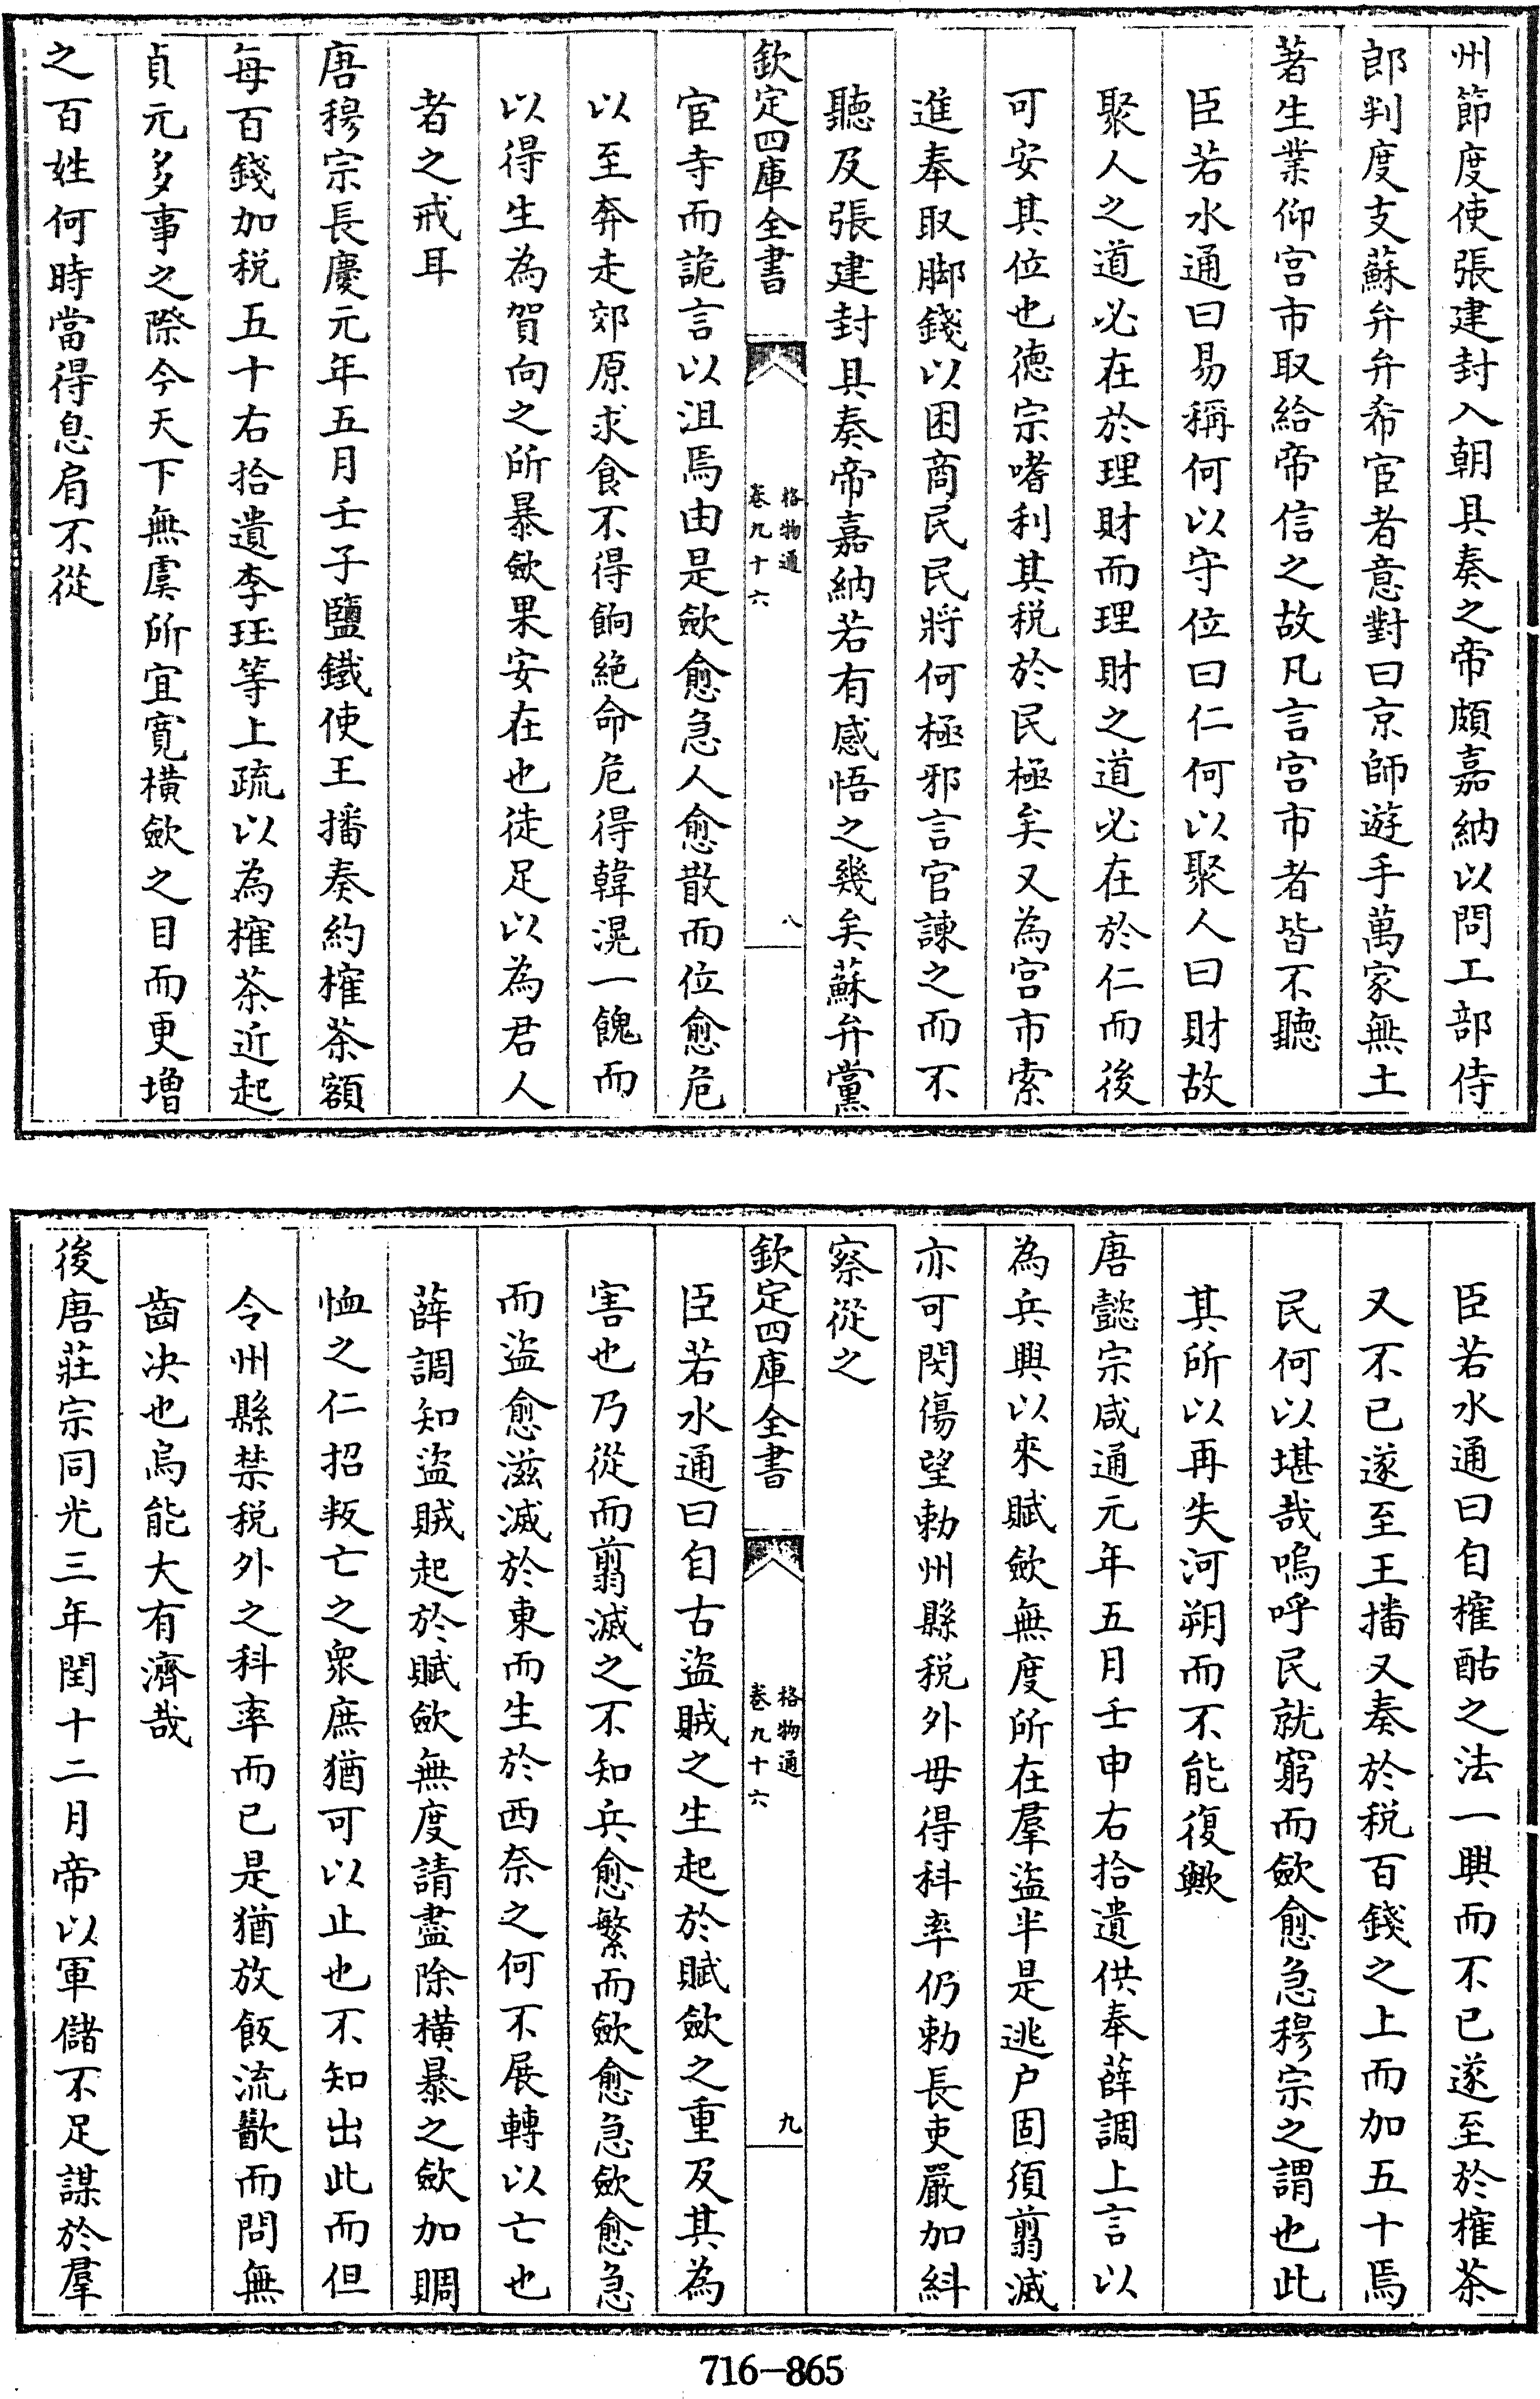 州節度使張建封入朝具奏之帝頗嘉納以問工部侍
郎判度支蘇弁弁希宦者意對曰京師遊手萬家無土
著生業仰宮市取給帝信之故凡言宮市者皆不聽
臣若水通曰易稱何以守位曰仁何以聚人曰財故
聚人之道必在於理財而理財之道必在於仁而後
可安其位也德宗嗜利其税於民極矣又為宮市索
進奉取脚錢以困商民民將何極邪言官諫之而不
聽及張建封具奏帝嘉納若有感悟之幾矣蘇弁黨
欽定四庫全書
格物通
卷九十六
八
宦寺而詭言以沮焉由是歛愈急人愈散而位愈危
以至奔走郊原求食不得餉絶命危得韓滉一餽而
以得生為賀向之所暴歛果安在也徒足以為君人
者之戒耳
唐穆宗長慶元年五月壬子鹽鐵使王播奏約榷茶額
每百錢加税五十右拾遺李珏等上疏以為榷茶近起
貞元多事之際今天下無虞所宜寛横歛之目而更增
之百姓何時當得息肩不從
臣若水通曰自榷酤之法一興而不已遂至於榷茶
又不已遂至王播又奏於税百錢之上而加五十焉
民何以堪哉嗚呼民就窮而歛愈急穆宗之謂也此
其所以再失河朔而不能復歟
唐懿宗咸通元年五月壬申右拾遺供奉薛調上言以
為兵興以來賦歛無度所在羣盜半是逃户固須翦滅
亦可閔傷望勅州縣税外毋得科率仍勅長吏嚴加糾
察從之
欽定四庫全書
格物通
卷九十六
九
臣若水通曰自古盜賊之生起於賦歛之重及其為
害也乃從而翦滅之不知兵愈繁而歛愈急歛愈急
而盜愈滋滅於東而生於西奈之何不展轉以亡也
薛調知盜賊起於賦歛無度請盡除横暴之歛加賙
恤之仁招叛亡之衆庶猶可以止也不知出此而但
令州縣禁税外之科率而已是猶放飯流歠而問無
齒决也烏能大有濟哉
後唐莊宗同光三年閏十二月帝以軍儲不足謀於羣
716-865